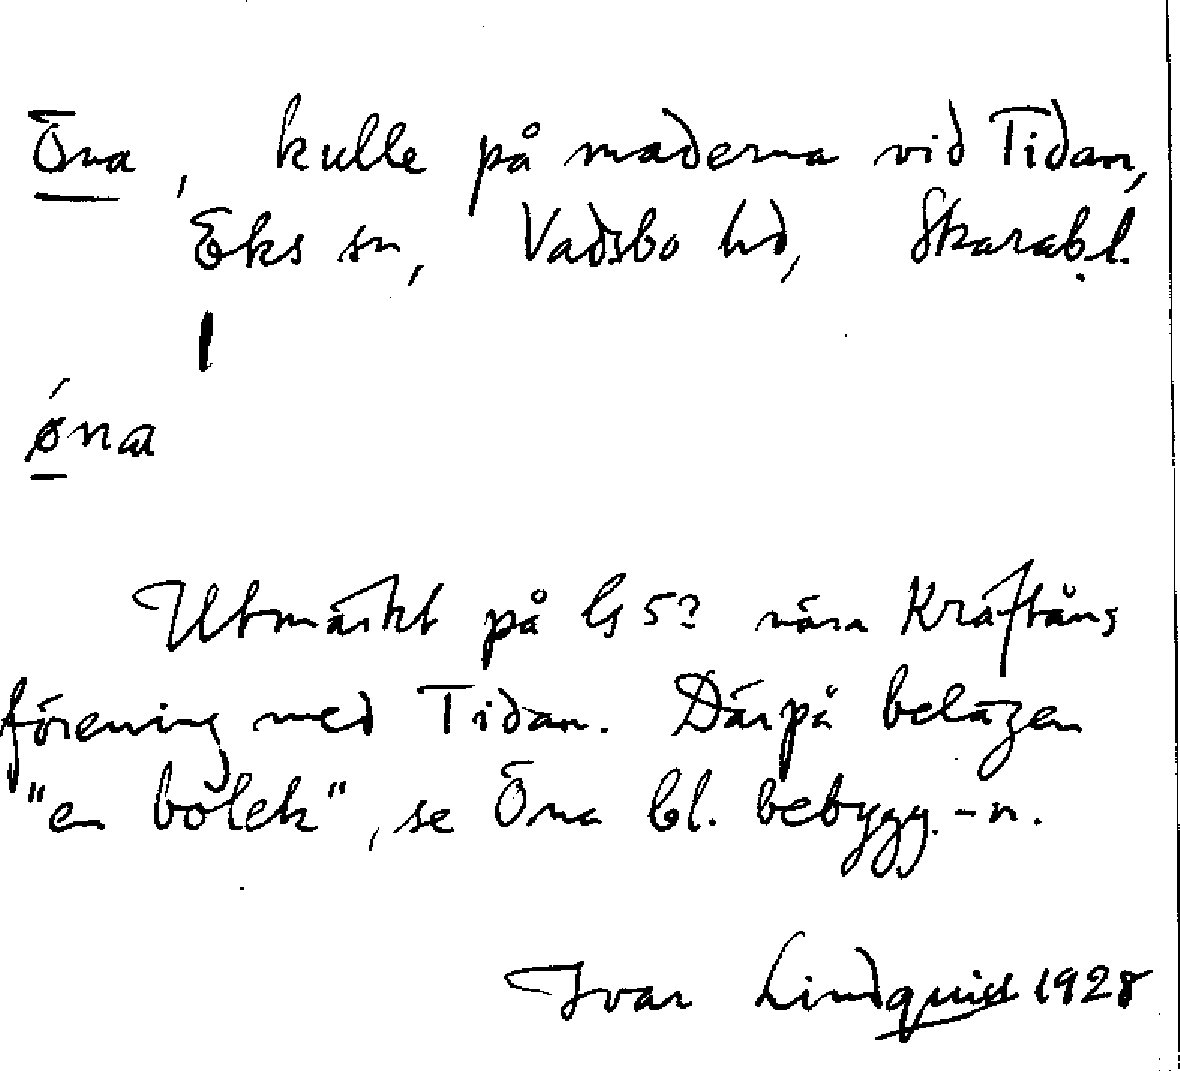 Öna, kulle på maderna vid Tidan,
Eks sn, Vadsbo hd, Skarab.l.
øna
Utmärkt på G5? nära Kräftåns
förening med Tidan. Därpå belägen
"en bolek", se Öna bl. bebygg.-n.
Ivar Lindquist 1928